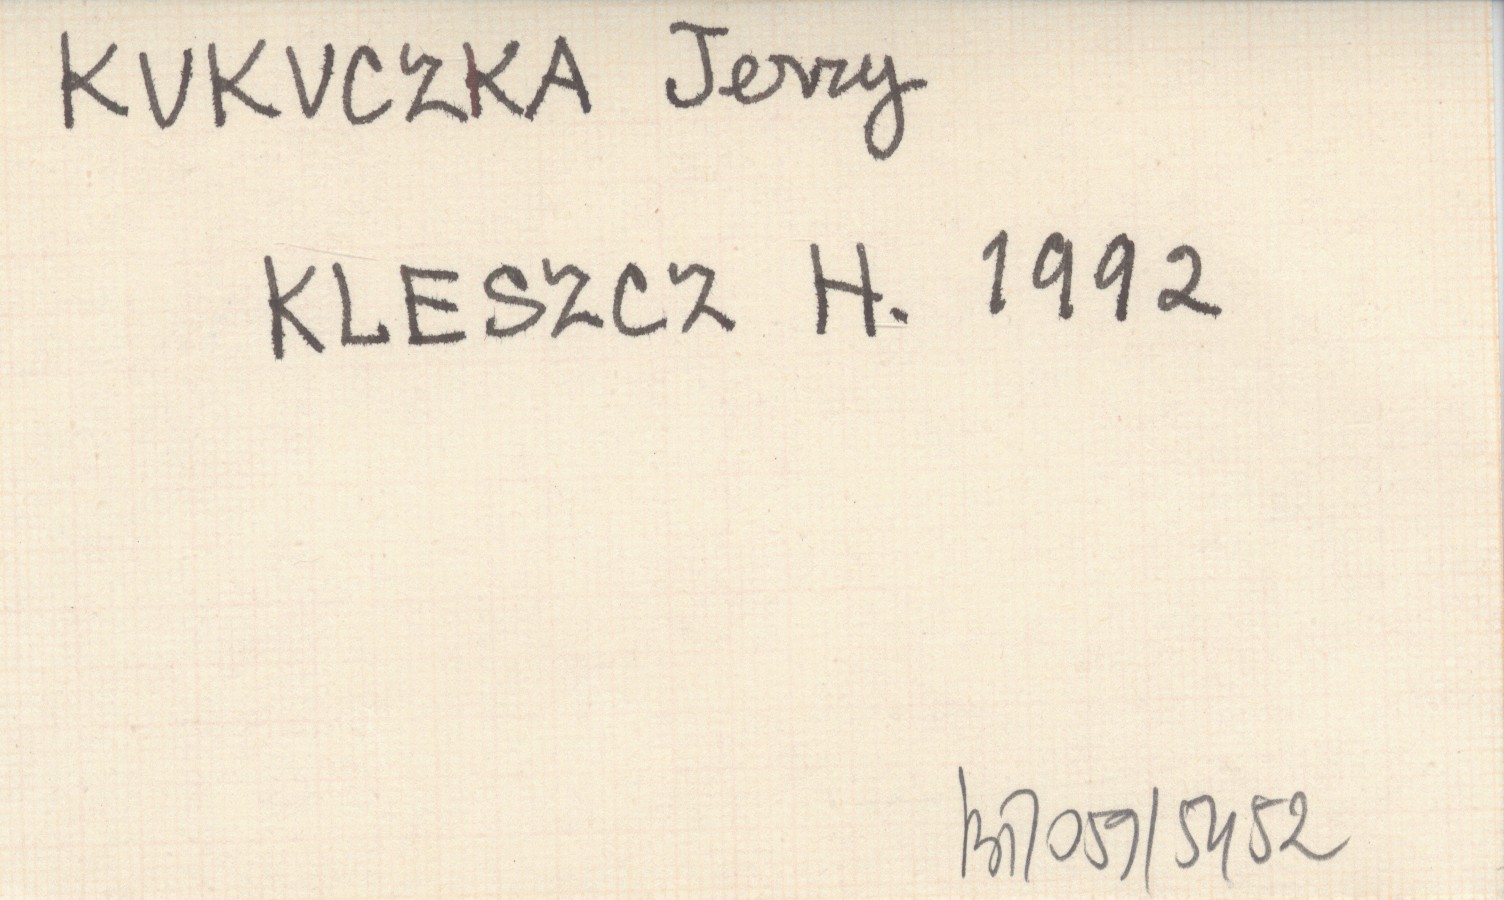 KUKUCZKA Jerzy
KLESZCZ H. 1992
059/5452